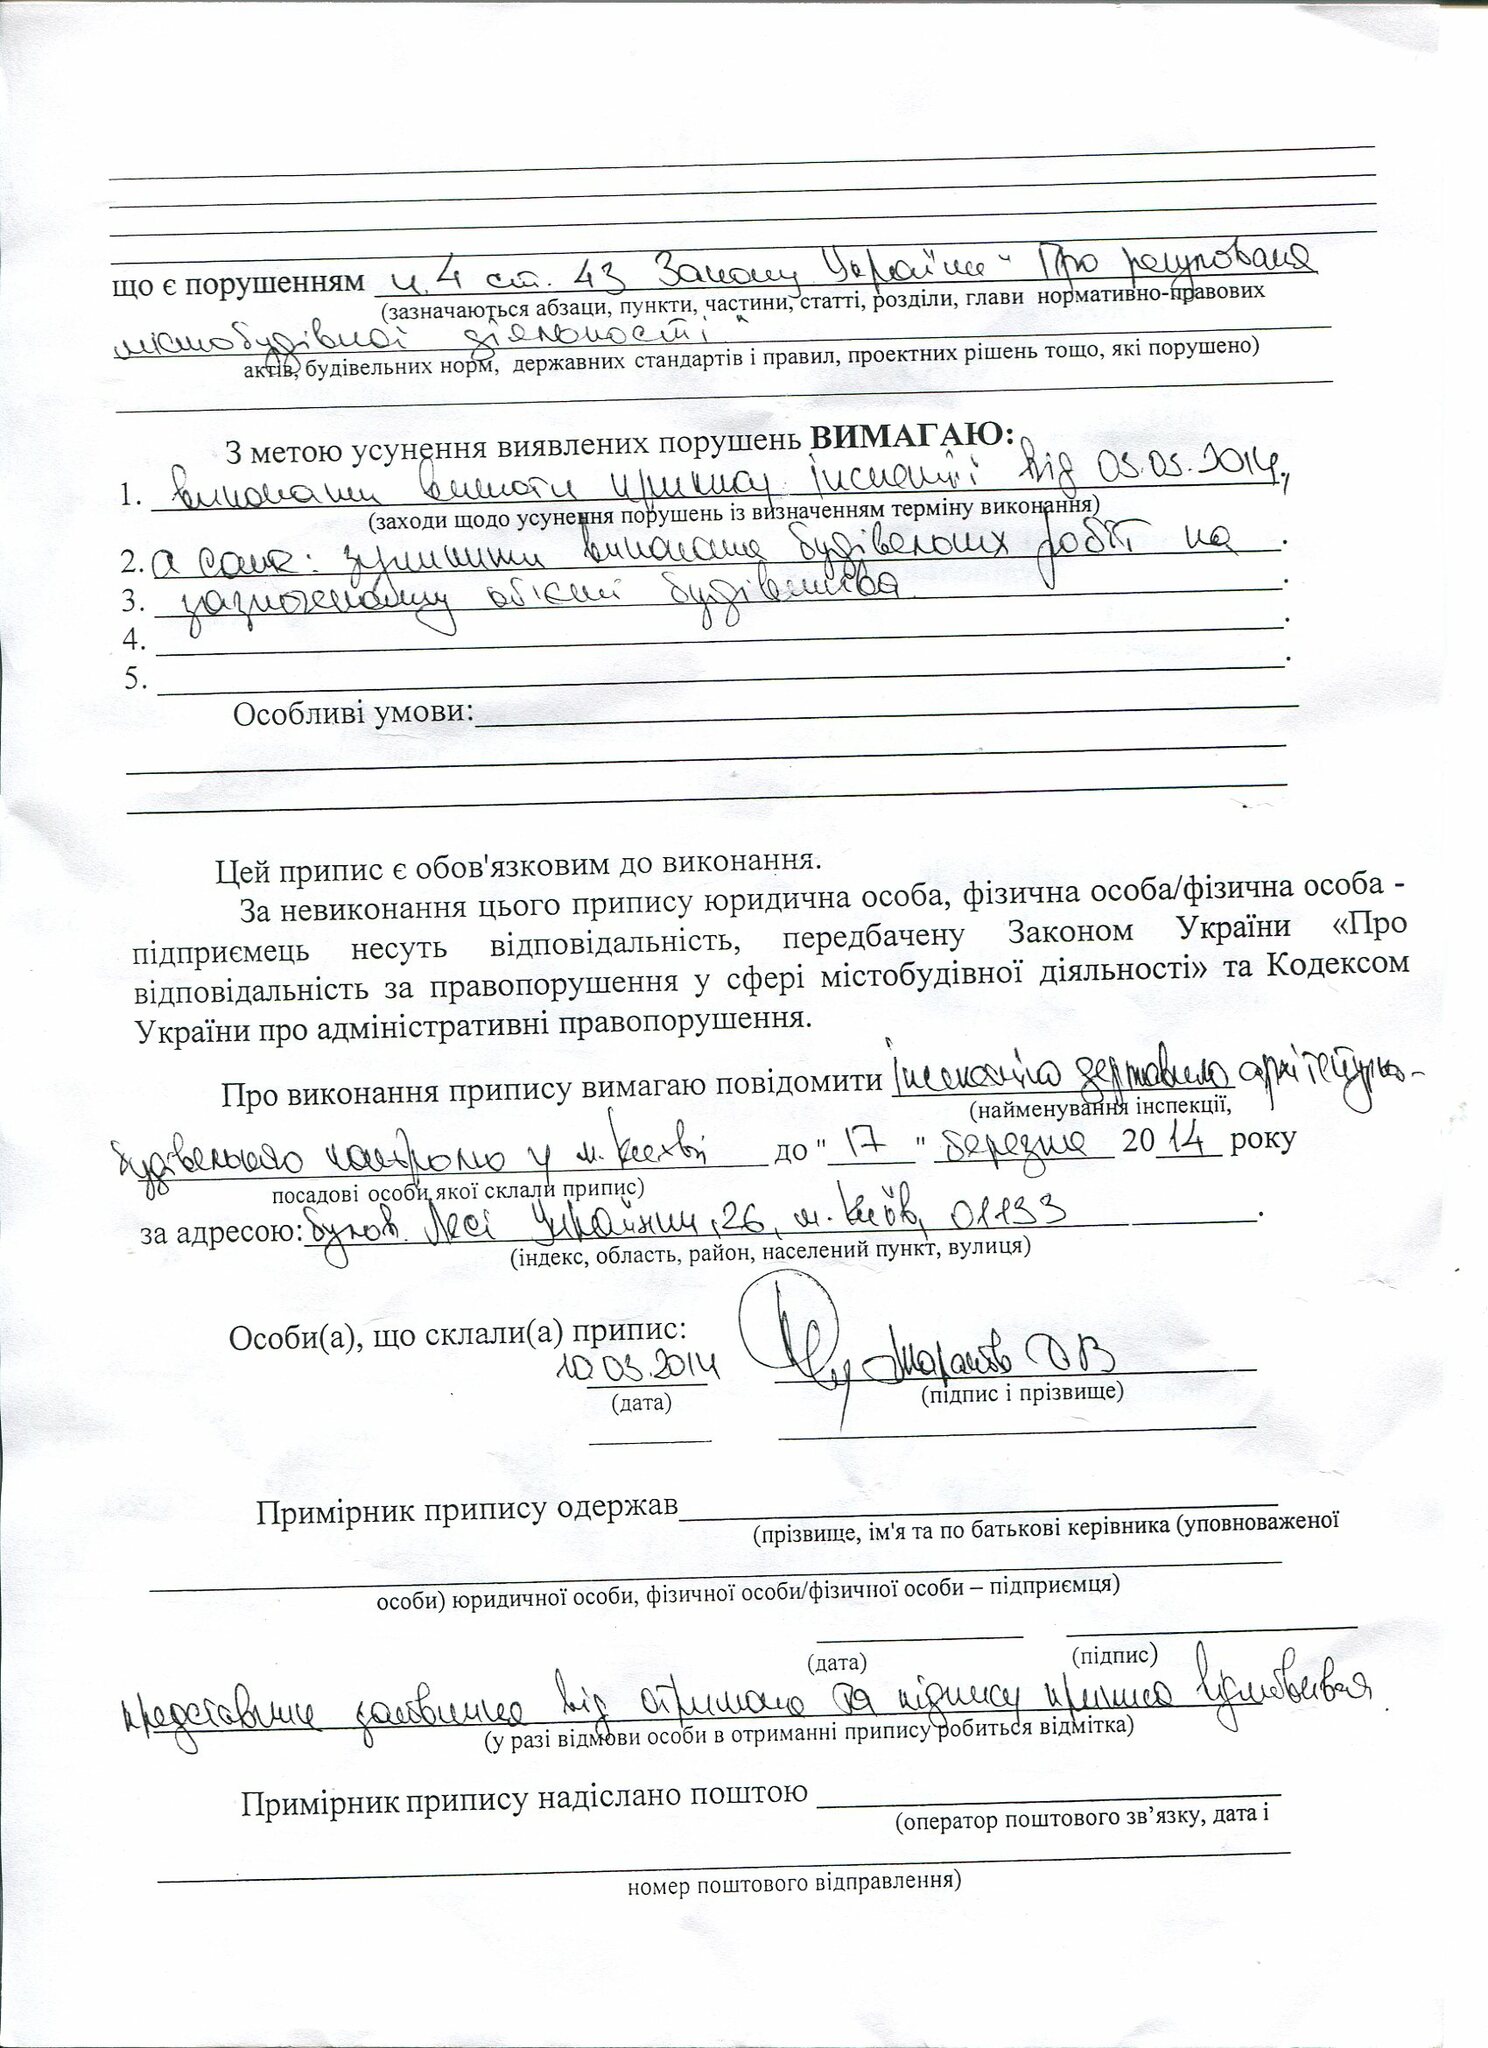 що є порушенням ч. 4 ст. 43 Закону України "Про регулювання
(зазначаються абзаци, пункти, частини, статті, розділи, глави нормативно-правових
містобудівної діяльності"
актів, будівельних норм, державних стандартів і правил, проектних рішень тощо, які порушено)
З метою усунення виявлених порушень ВИМАГАЮ:
1. виконати вимоги припису інспекції від 05.03.2014,
(заходи щодо усунення порушень із визначенням терміну виконання)
2. а саме: зупинити виконання будівельних робіт на .
3. зазначеному об'єкті будівництва .
4. .
5. .
Особливі умови:
Цей припис є обов'язковим до виконання.
За невиконання цього припису юридична особа, фізична особа/фізична особа -
підприємець несуть відповідальність, передбачену Законом України «Про
відповідальність за правопорушення у сфері містобудівної діяльності» та Кодексом
України про адміністративні правопорушення.
Про виконання припису вимагаю повідомити Інспекцію державного архітектурно-
(найменування інспекції,
будівельного контролю у м. Києві до "17" березня 2014 року
посадові особи якої склали припис)
за адресою: бульв. Лесі Українки, 26, м. Київ, 01133 .
(індекс, область, район, населений пункт, вулиця)
Особи(а), що склали(а) припис:
10.03.2014
(дата) (підпис і прізвище)
Примірник припису одержав
(прізвище, ім'я та по батькові керівника (уповноваженої
особи) юридичної особи, фізичної особи/фізичної особи – підприємця)
(дата) (підпис)
представник замовника від отримання та підпису припису відмовився
(у разі відмови особи в отриманні припису робиться відмітка)
Примірник припису надіслано поштою
(оператор поштового зв’язку, дата і
номер поштового відправлення)